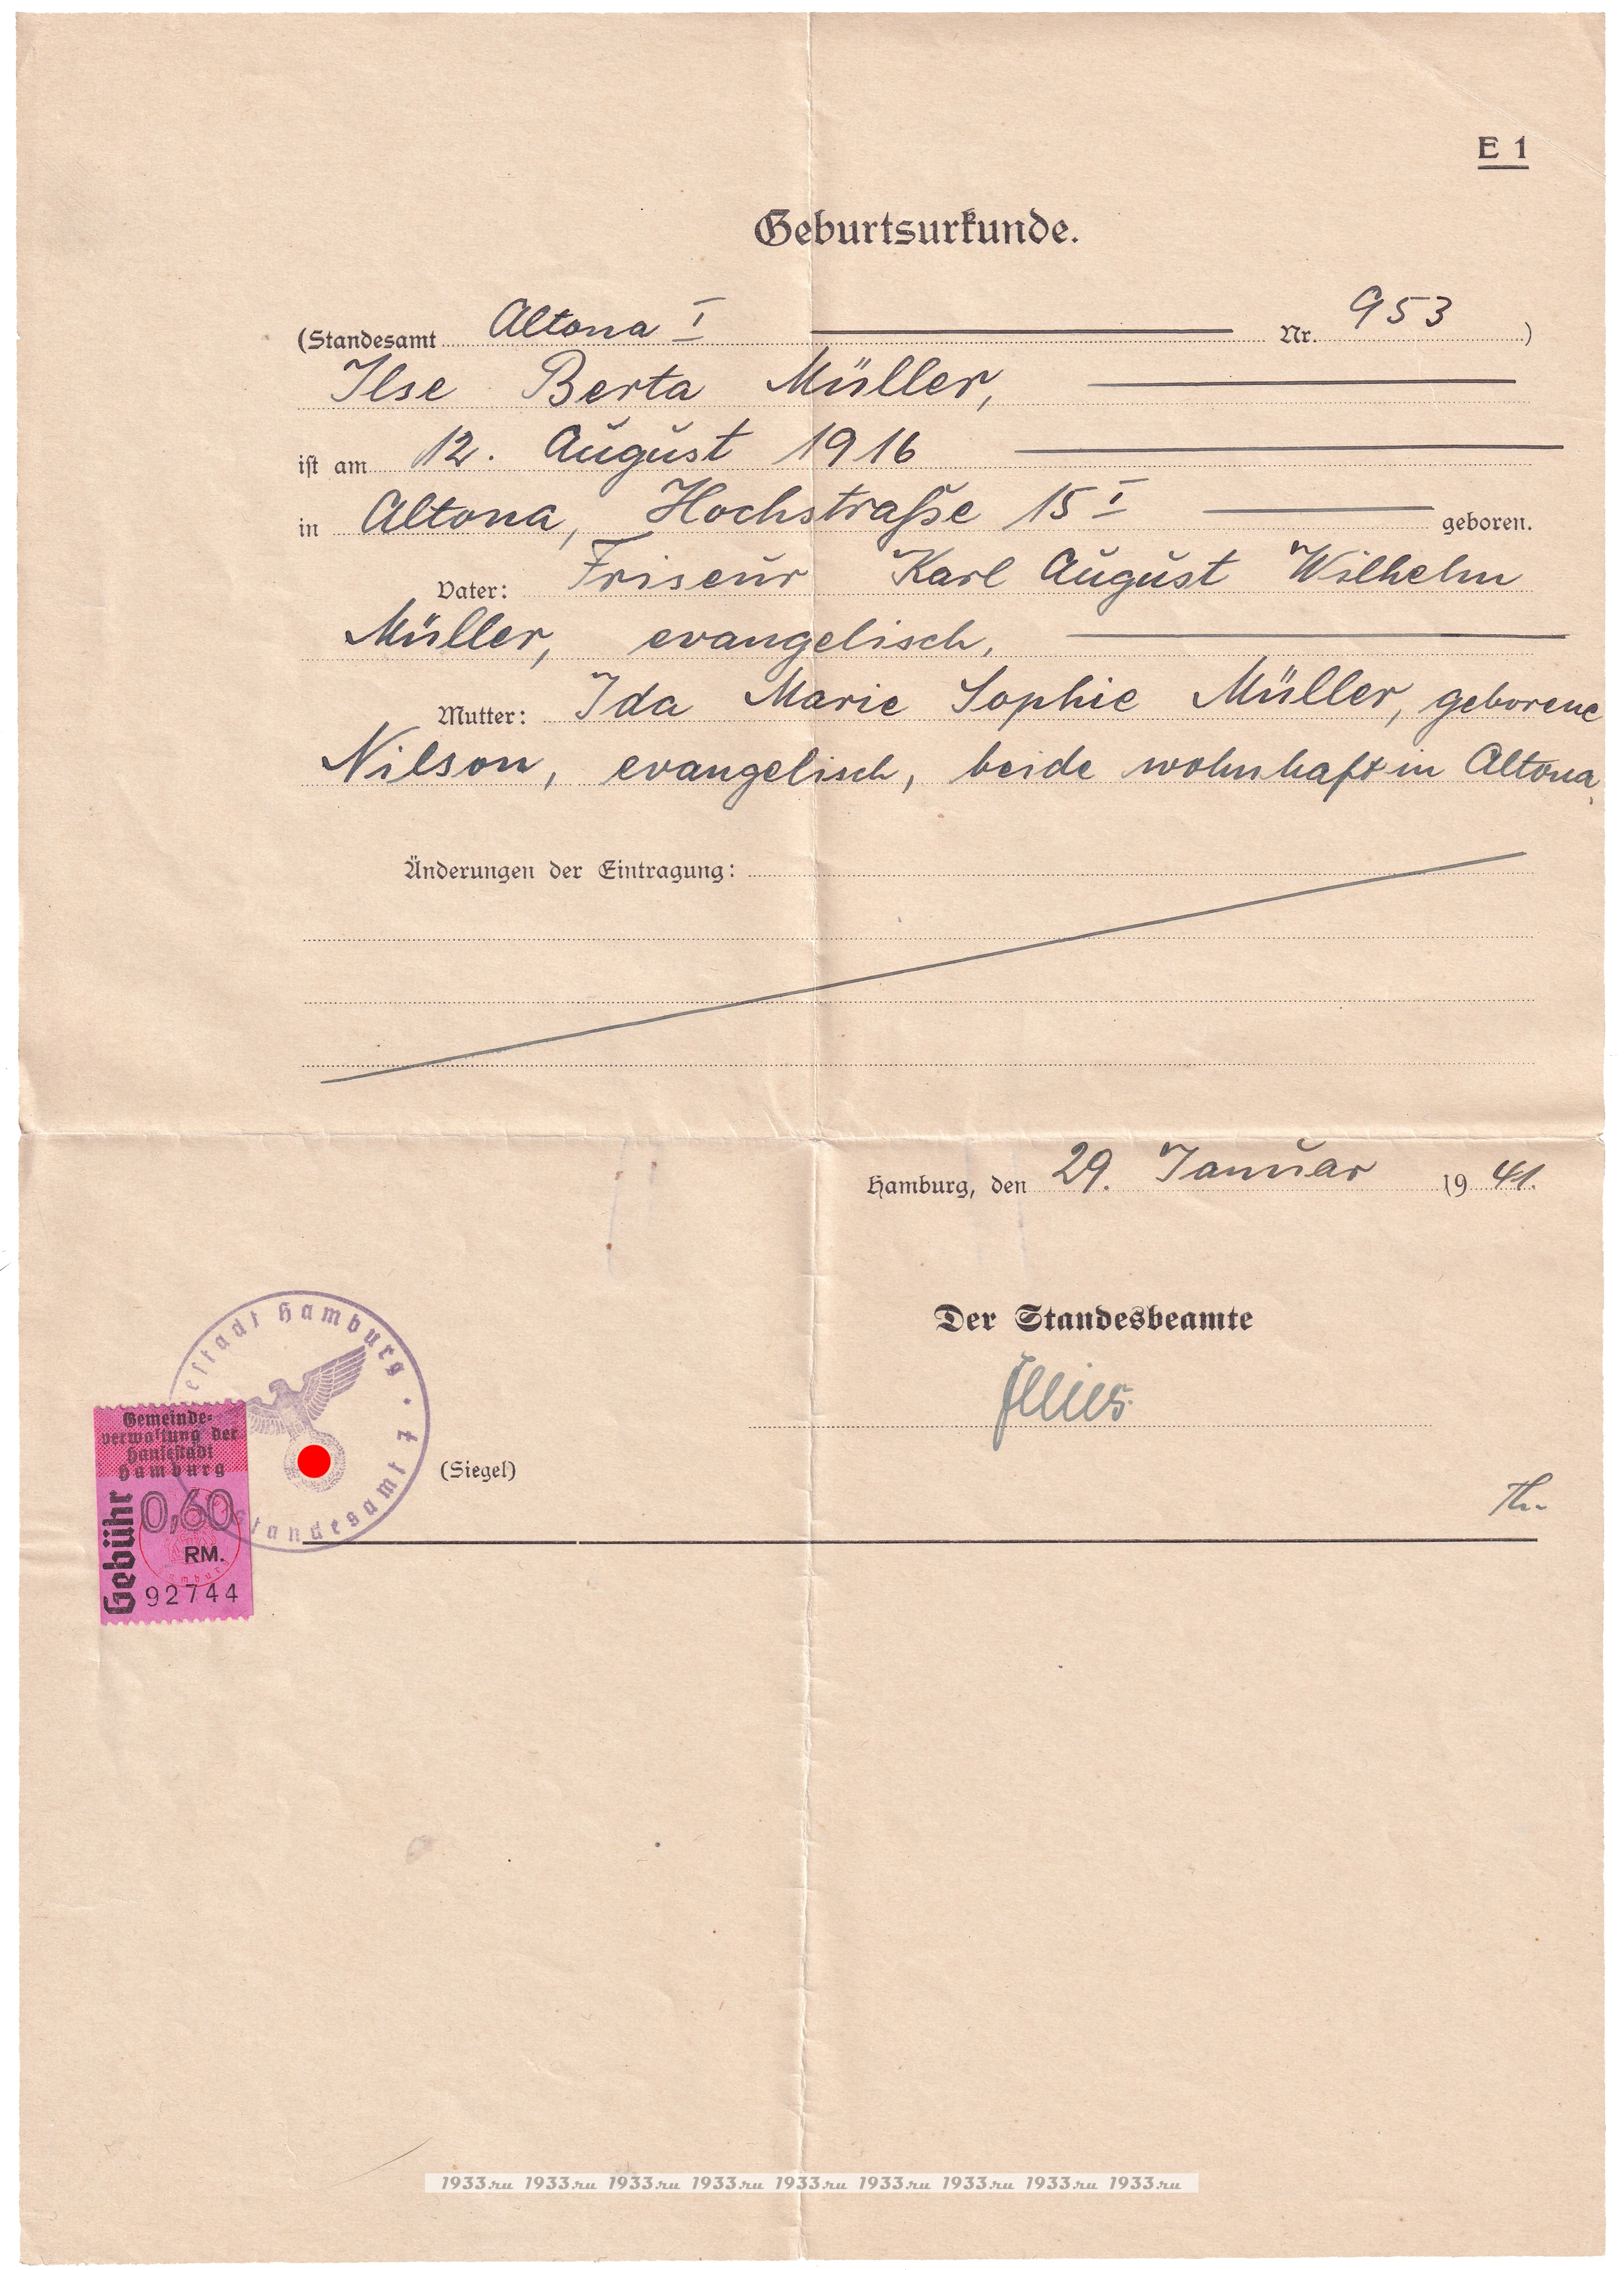 E 1
Geburtsurkunde.
(Standesamt Altona I Nr. 953)
Ilse Berta Müller,
ist am 12. August 1916
in Altona, Hochstraße 15 I geboren.
Vater: Friseur Karl August Wilhelm
Müller, evangelisch,
Mutter: Ida Marie Sophie Müller, geborene
Nilson, evangelisch, beide wohnhaft in Altona.
Änderungen der Eintragung:
Hamburg, den 29. Januar 1941.
Der Standesbeamte
(Siegel)
Th.
estadt Hamburg · Standesamt
Gemeinde-
verwaltung der
Hansestadt
Hamburg
Gebühr
0,60
RM.
92744
1933.ru 1933.ru 1933.ru 1933.ru 1933.ru 1933.ru 1933.ru 1933.ru 1933.ru